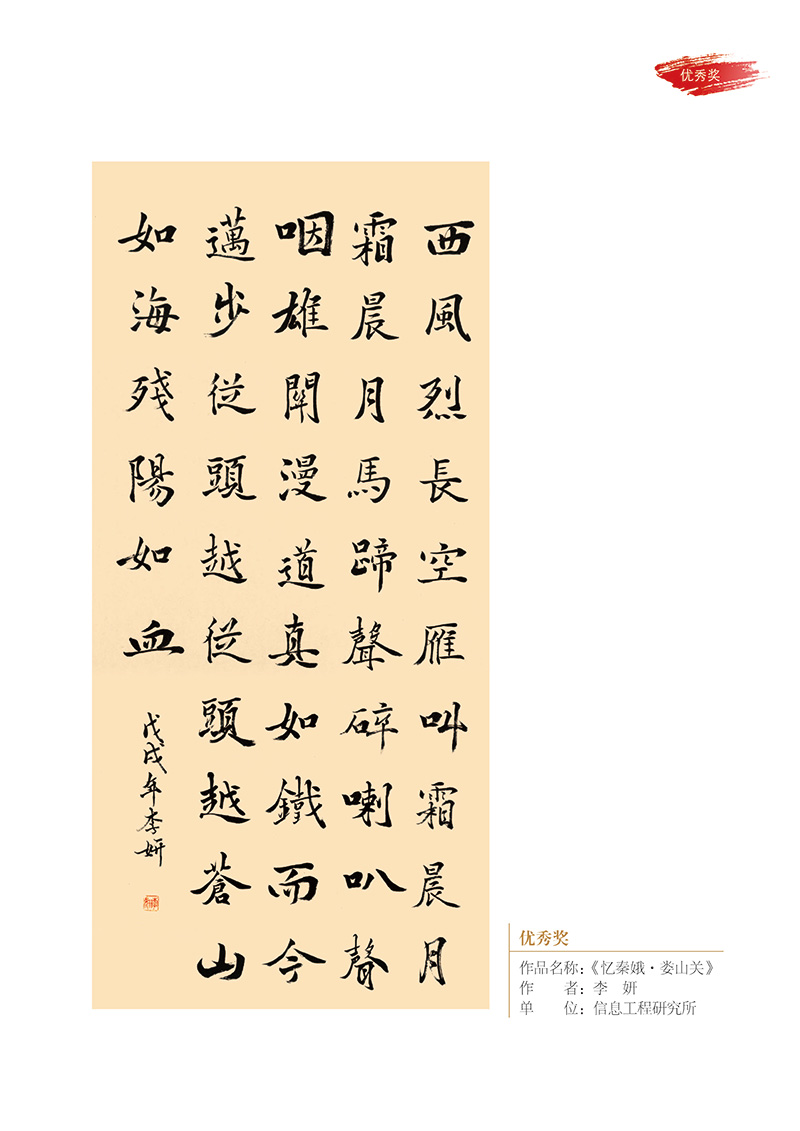 优秀奖
西風烈長空雁叫霜晨月
霜晨月馬蹄聲碎喇叭聲
咽雄關漫道真如鐵而今
邁步從頭越從頭越蒼山
如海殘陽如血
戊戌年李妍
优秀奖
作品名称：《忆秦娥·娄山关》
作　者：李　妍
单　位：信息工程研究所